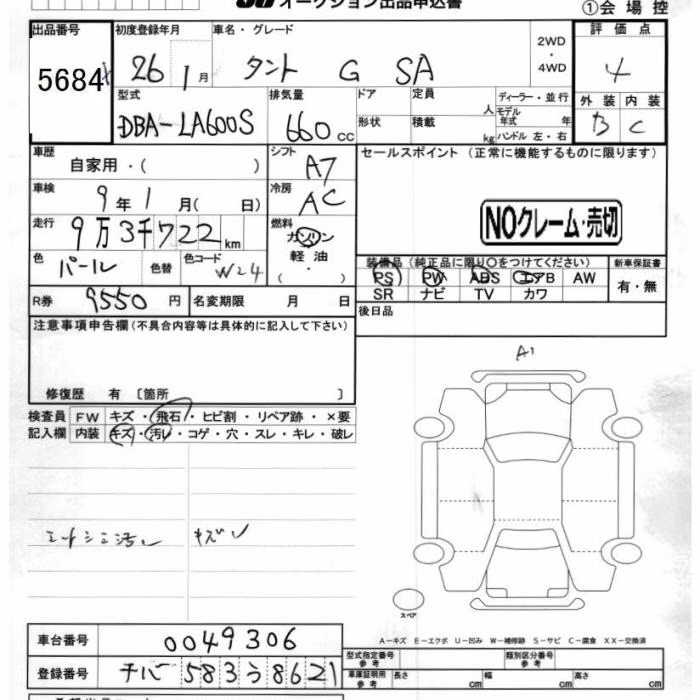 オークション出品申込書
①会場控
出品番号 初度登録年月 車名・グレード 評価点
5684 26 1月 タント G SA 2WD・4WD 4
型式 排気量 ドア 定員 ディーラー・並行 外装 内装
DBA-LA600S 660cc 形状 積載 人 kg モデル年式 年 ハンドル 左・右 B C
車歴 自家用・( ) シフト A7 セールスポイント (正常に機能するものに限ります)
車検 9年1月( 日) 冷房 AC
走行 9万3千722km 燃料 ガソリン・軽油・( ) NOクレーム・売切
色 パール 色替 色コード W24
装備品(純正品に限り○をつけてください) 新車保証書
PS PW ABS エアB AW 有・無
SR ナビ TV カワ
R券 9550円 名変期限 月 日 後日品
注意事項申告欄(不具合内容等は具体的に記入して下さい)
A1
修復歴 有 〔箇所 〕
検査員記入欄 FW キズ・飛石・ヒビ割・リペア跡・×要
内装 キズ・汚レ・コゲ・穴・スレ・キレ・破レ
キズレ
スペア
A-キズ E-エクボ U-凹み W-補修跡 S-サビ C-腐食 XX-交換済
車台番号 0049306
型式指定番号参考 類別区分番号参考
登録番号 チバ 583う8621
車庫証明用参考 長さ cm 幅 cm 高さ cm